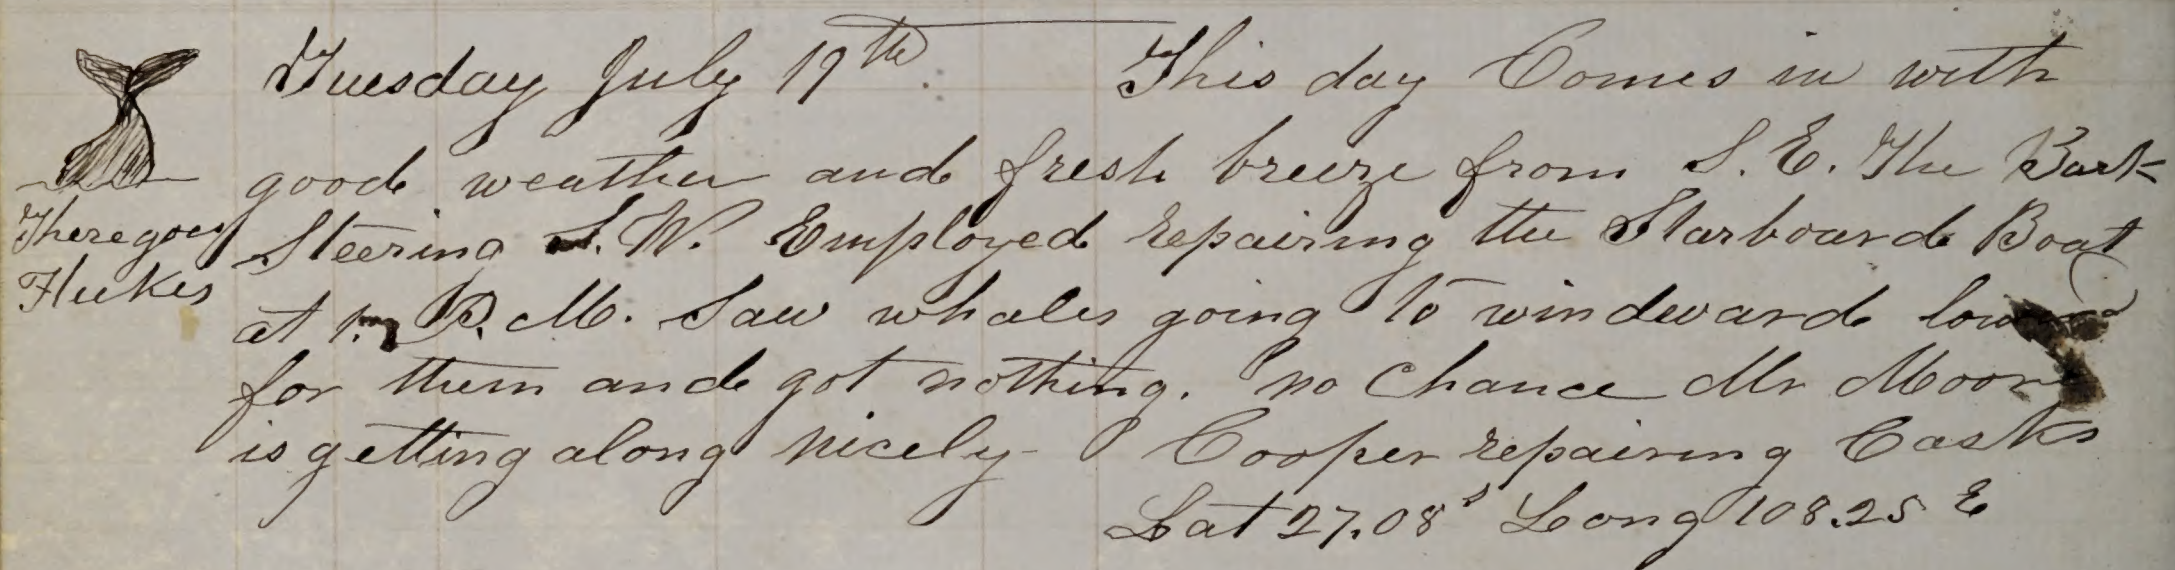 Tuesday July 19th. This day Comes in with
good weather and fresh breeze from S. E. The Bark
There goes
Steering S. W. Employed repairing the Starboard Boat
Flukes
at 1. P. M. Saw whales going to windward lowered
for them and got nothing. no Chance Mr Moore
is getting along nicely - Cooper repairing Casks
Lat 27.08 s Long 108.25 E